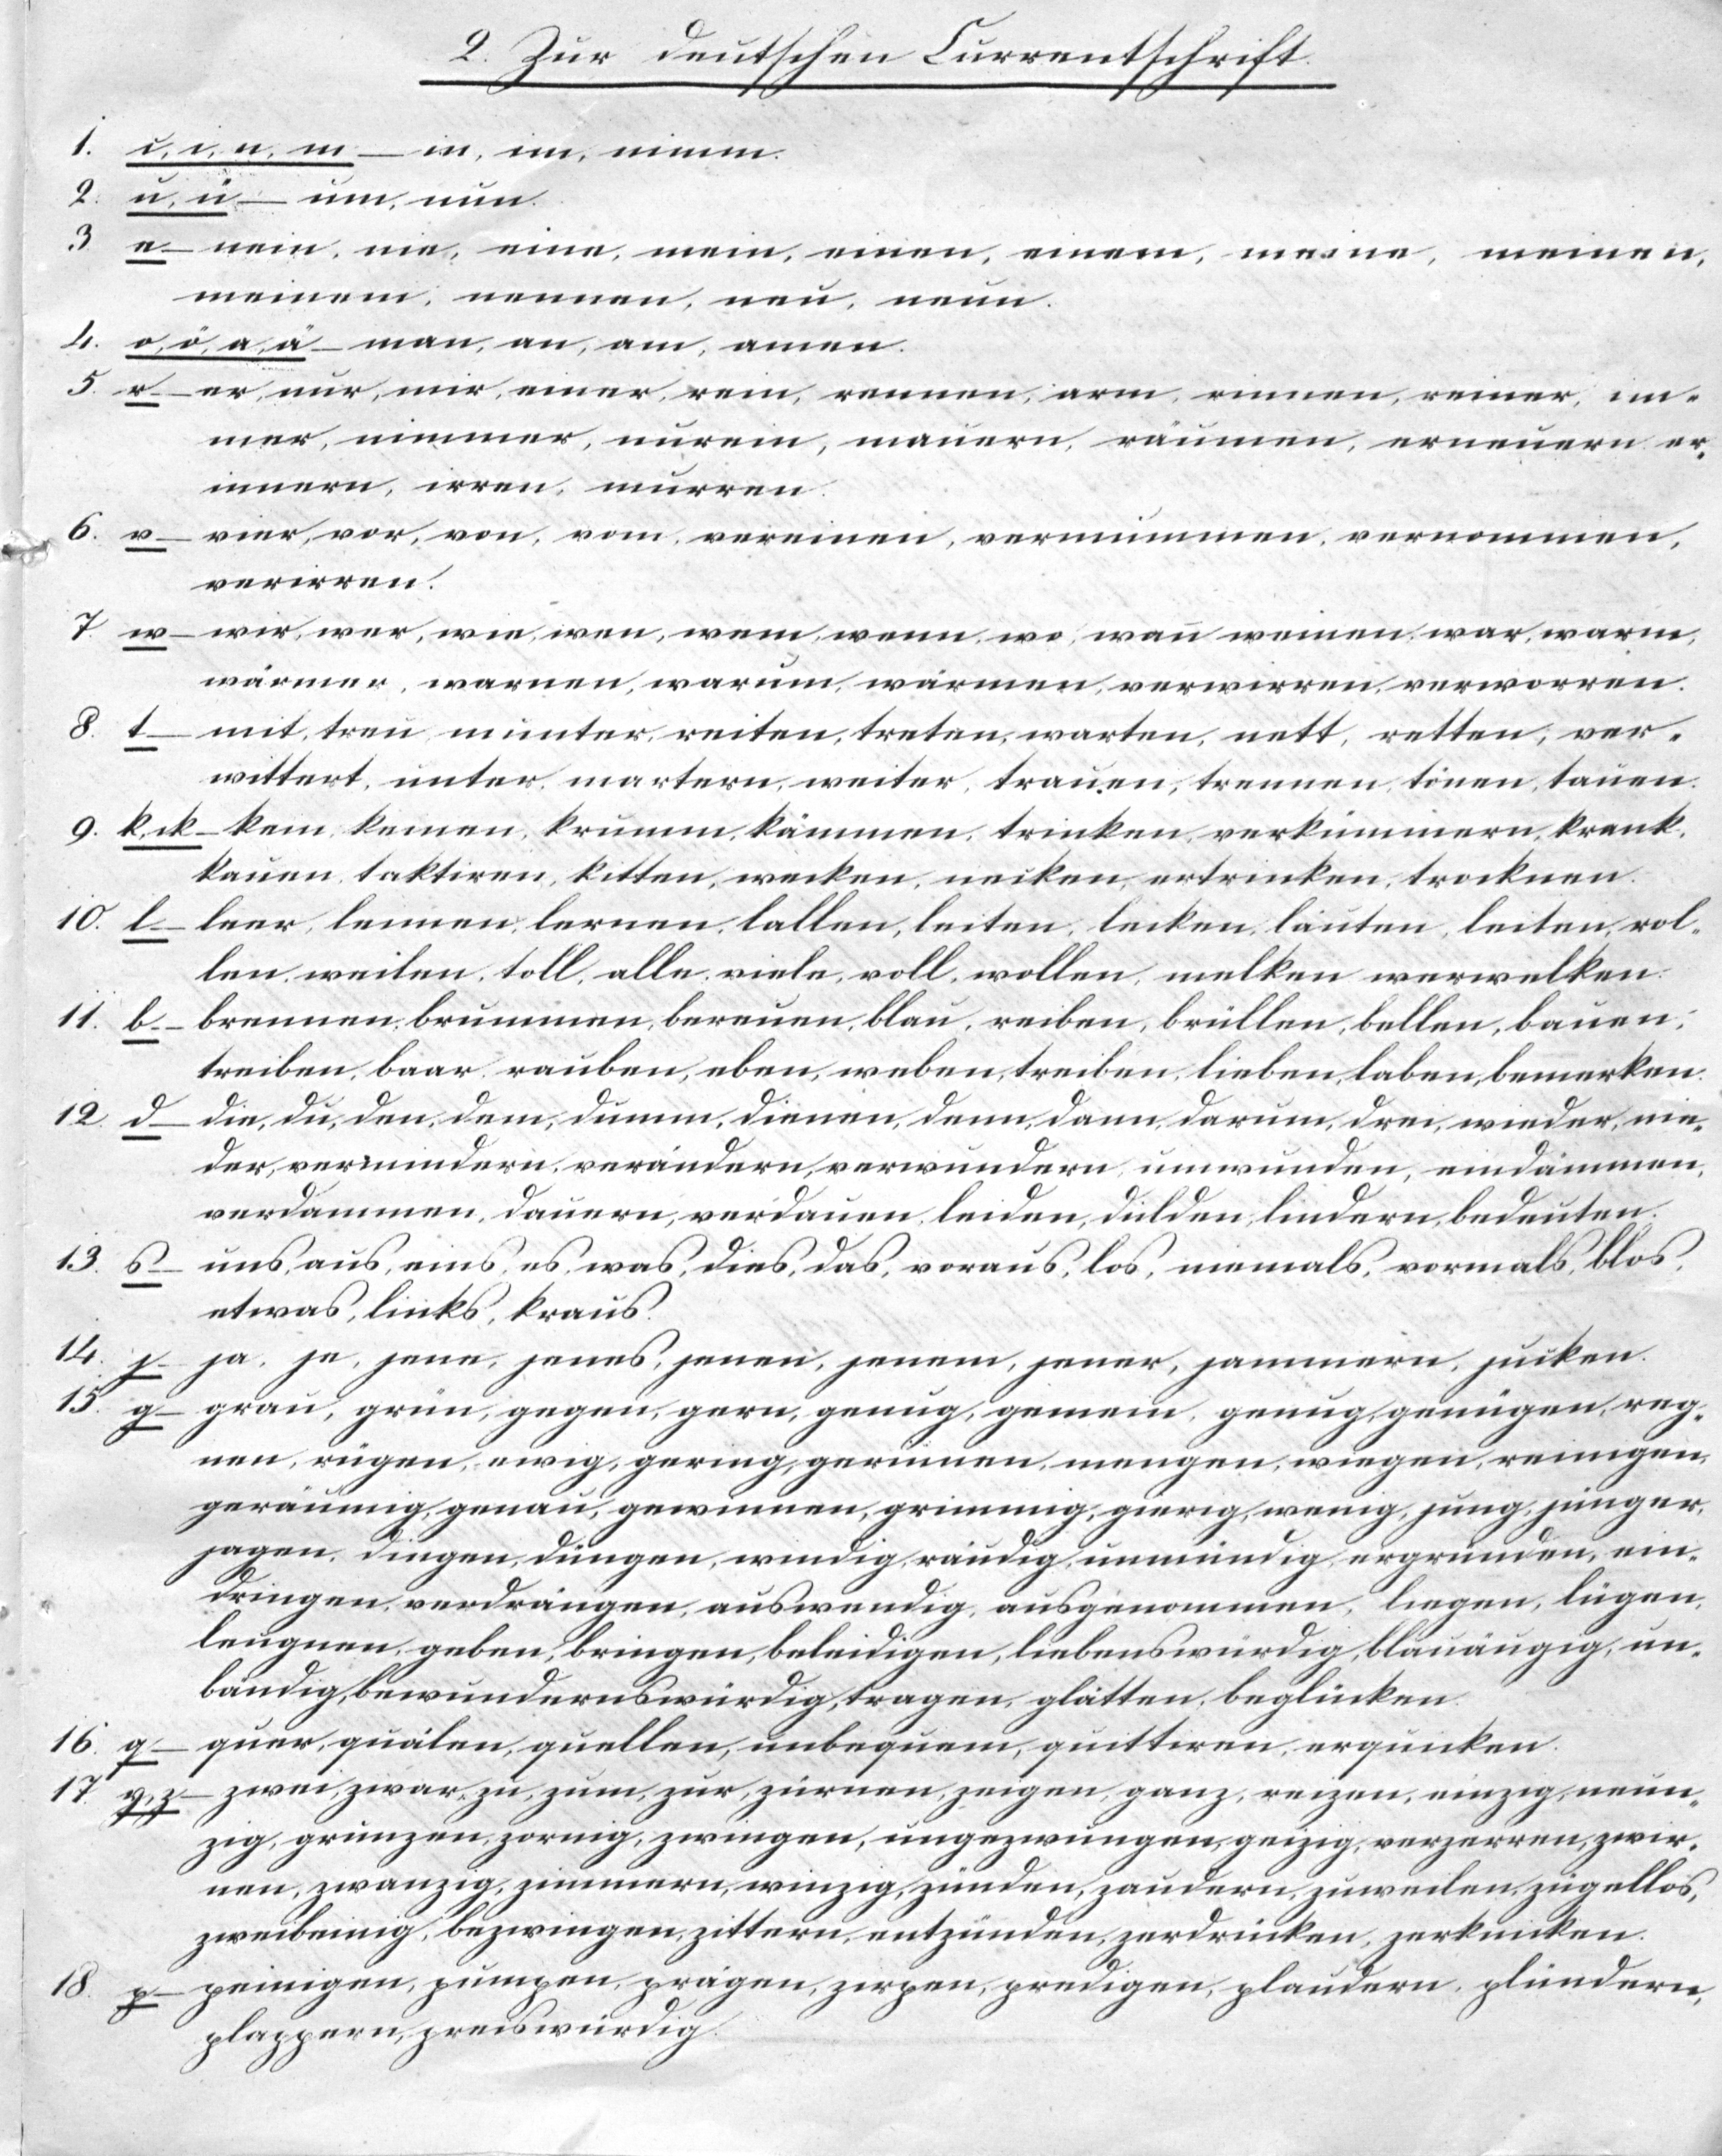 2. Zur deutschen Currentschrift.
1. i, i, n, m — in, im, nimm.
2. u, ü — um, nun.
3 e — nein, nie, eine, mein, einen, einem, meine, meinen,
meinem, nennen, neu, neun.
4. o, ö, a, ä — man, an, am, amen.
5. r — er, nur, mir, einer, rein, rennen, arm, rinnen, reiner, im-
mer, nimmer, nurein, mauern, räumen, erneuern er-
innern, irren, murren.
6. v — vier, vor, von, vom, vereinen, vermummen, vernommen,
verirren.
7. w — wir, wer, wie, wen, wem, wenn, wo, wañ weinen, war, warm,
wärmer, warnen, warum, wärmen, verwirren, verworren.
8. t — mit, treu, munter, reiten, treten, warten, nett, retten, ver-
wittert, unter, martern, weiter, trauen, trennen, tönen, tauen.
9. k, ck — kein, keinen, krumm, kämmen, trinken, verkümmern, krank,
kauen, taktiren, kitten, wecken, necken, ertrinken, trocknen.
10. l — leer, lernen, lallen, leiten, lecken, läuten, leiten, rol-
len, weilen, toll, alle, viele, voll, wollen, melken verwelken.
11. b — brennen, brummen, bereuen, blau, reiben, brüllen, bellen, bauen,
treiben, baar, rauben, eben, weben, treiben, lieben, laben, bemerken.
12. d — die, du, den, dem, dumm, dienen, denn, dann, darum, drei, wieder, nie-
der, vermindern, verändern, verwundern, umwunden, eindämmen,
verdammen, dauern, verdauen, leiden, dulden, lindern, bedeuten.
13. s — uns, aus, eins, es, was, dies, das, voraus, los, niemals, vormals, blos,
etwas, links, kraus.
14. j — ja, je, jene, jenes, jenen, jenem, jener, jammern, jucken.
15. g — grau, grün, gegen, gern, genug, gemein, genug, genügen, reg-
nen, rügen, ewig, gering, gerinnen, mengen, wiegen, reinigen,
geräumig, genau, gewinnen, grimmig, gierig, wenig, jung, jünger,
jagen, dingen, düngen, windig, räudig, unmündig, ergründen, ein-
dringen, verdrängen, auswendig, ausgenommen, liegen, lügen,
leugnen, geben, bringen, beleidigen, liebenswürdig, blauäugig, un-
bändig, bewundernswürdig, tragen, glätten, beglücken.
16. q — quer, quälen, quellen, unbequem, quittiren, erquicken.
17. y, z — zwei, zwar, zu, zum, zur, zürnen, zeigen, ganz, reizen, einzig, neun-
zig, grunzen, zornig, zwingen, ungezwungen, geizig, verzerren, zwir-
nen, zwanzig, zimmern, winzig, zünden, zaudern, zuweilen, zügellos,
zweibeinig, bezwingen, zittern, entzünden, zerdrücken, zerknicken.
18. p — peinigen, pumpen, prägen, zirpen, predigen, plaudern, plündern,
plappern, preiswürdig.